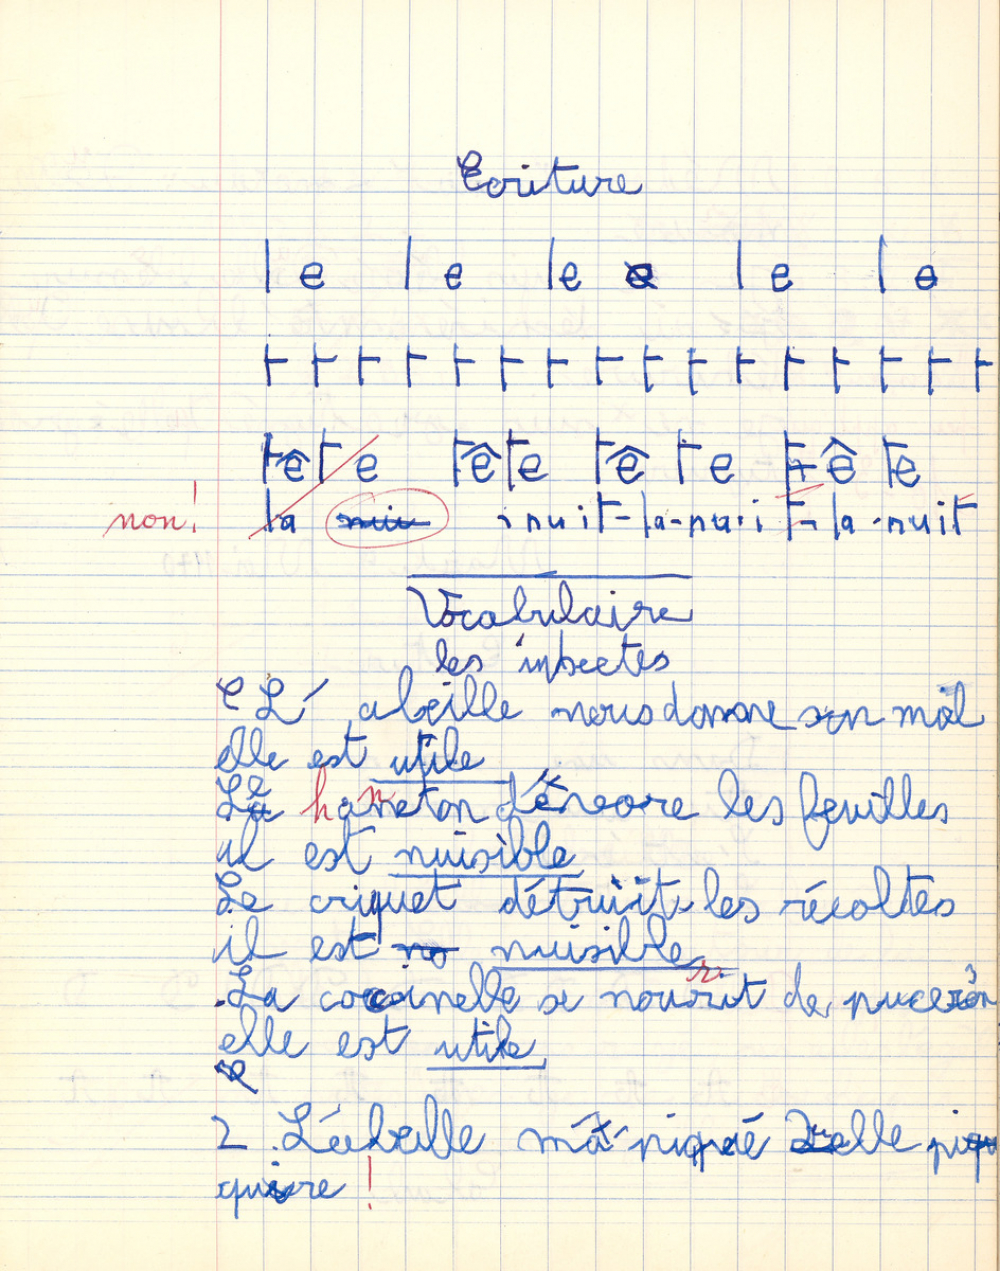 Ecriture
le le le e le le
t t t t t t t t t t t t t t t t
tête tête tête tête
non! la nui nuit-la-nuit-la-nuit
Vocabulaire
les insectes
L'abeille nous donne son miel
elle est utile
Le hanneton dévore les feuilles
il est nuisible
Le criquet détruit les récoltes
il est no nuisible
La coccinelle se nourrit de puceron
elle est utile
2. L'abeille m'a piqué elle piqu
quere !